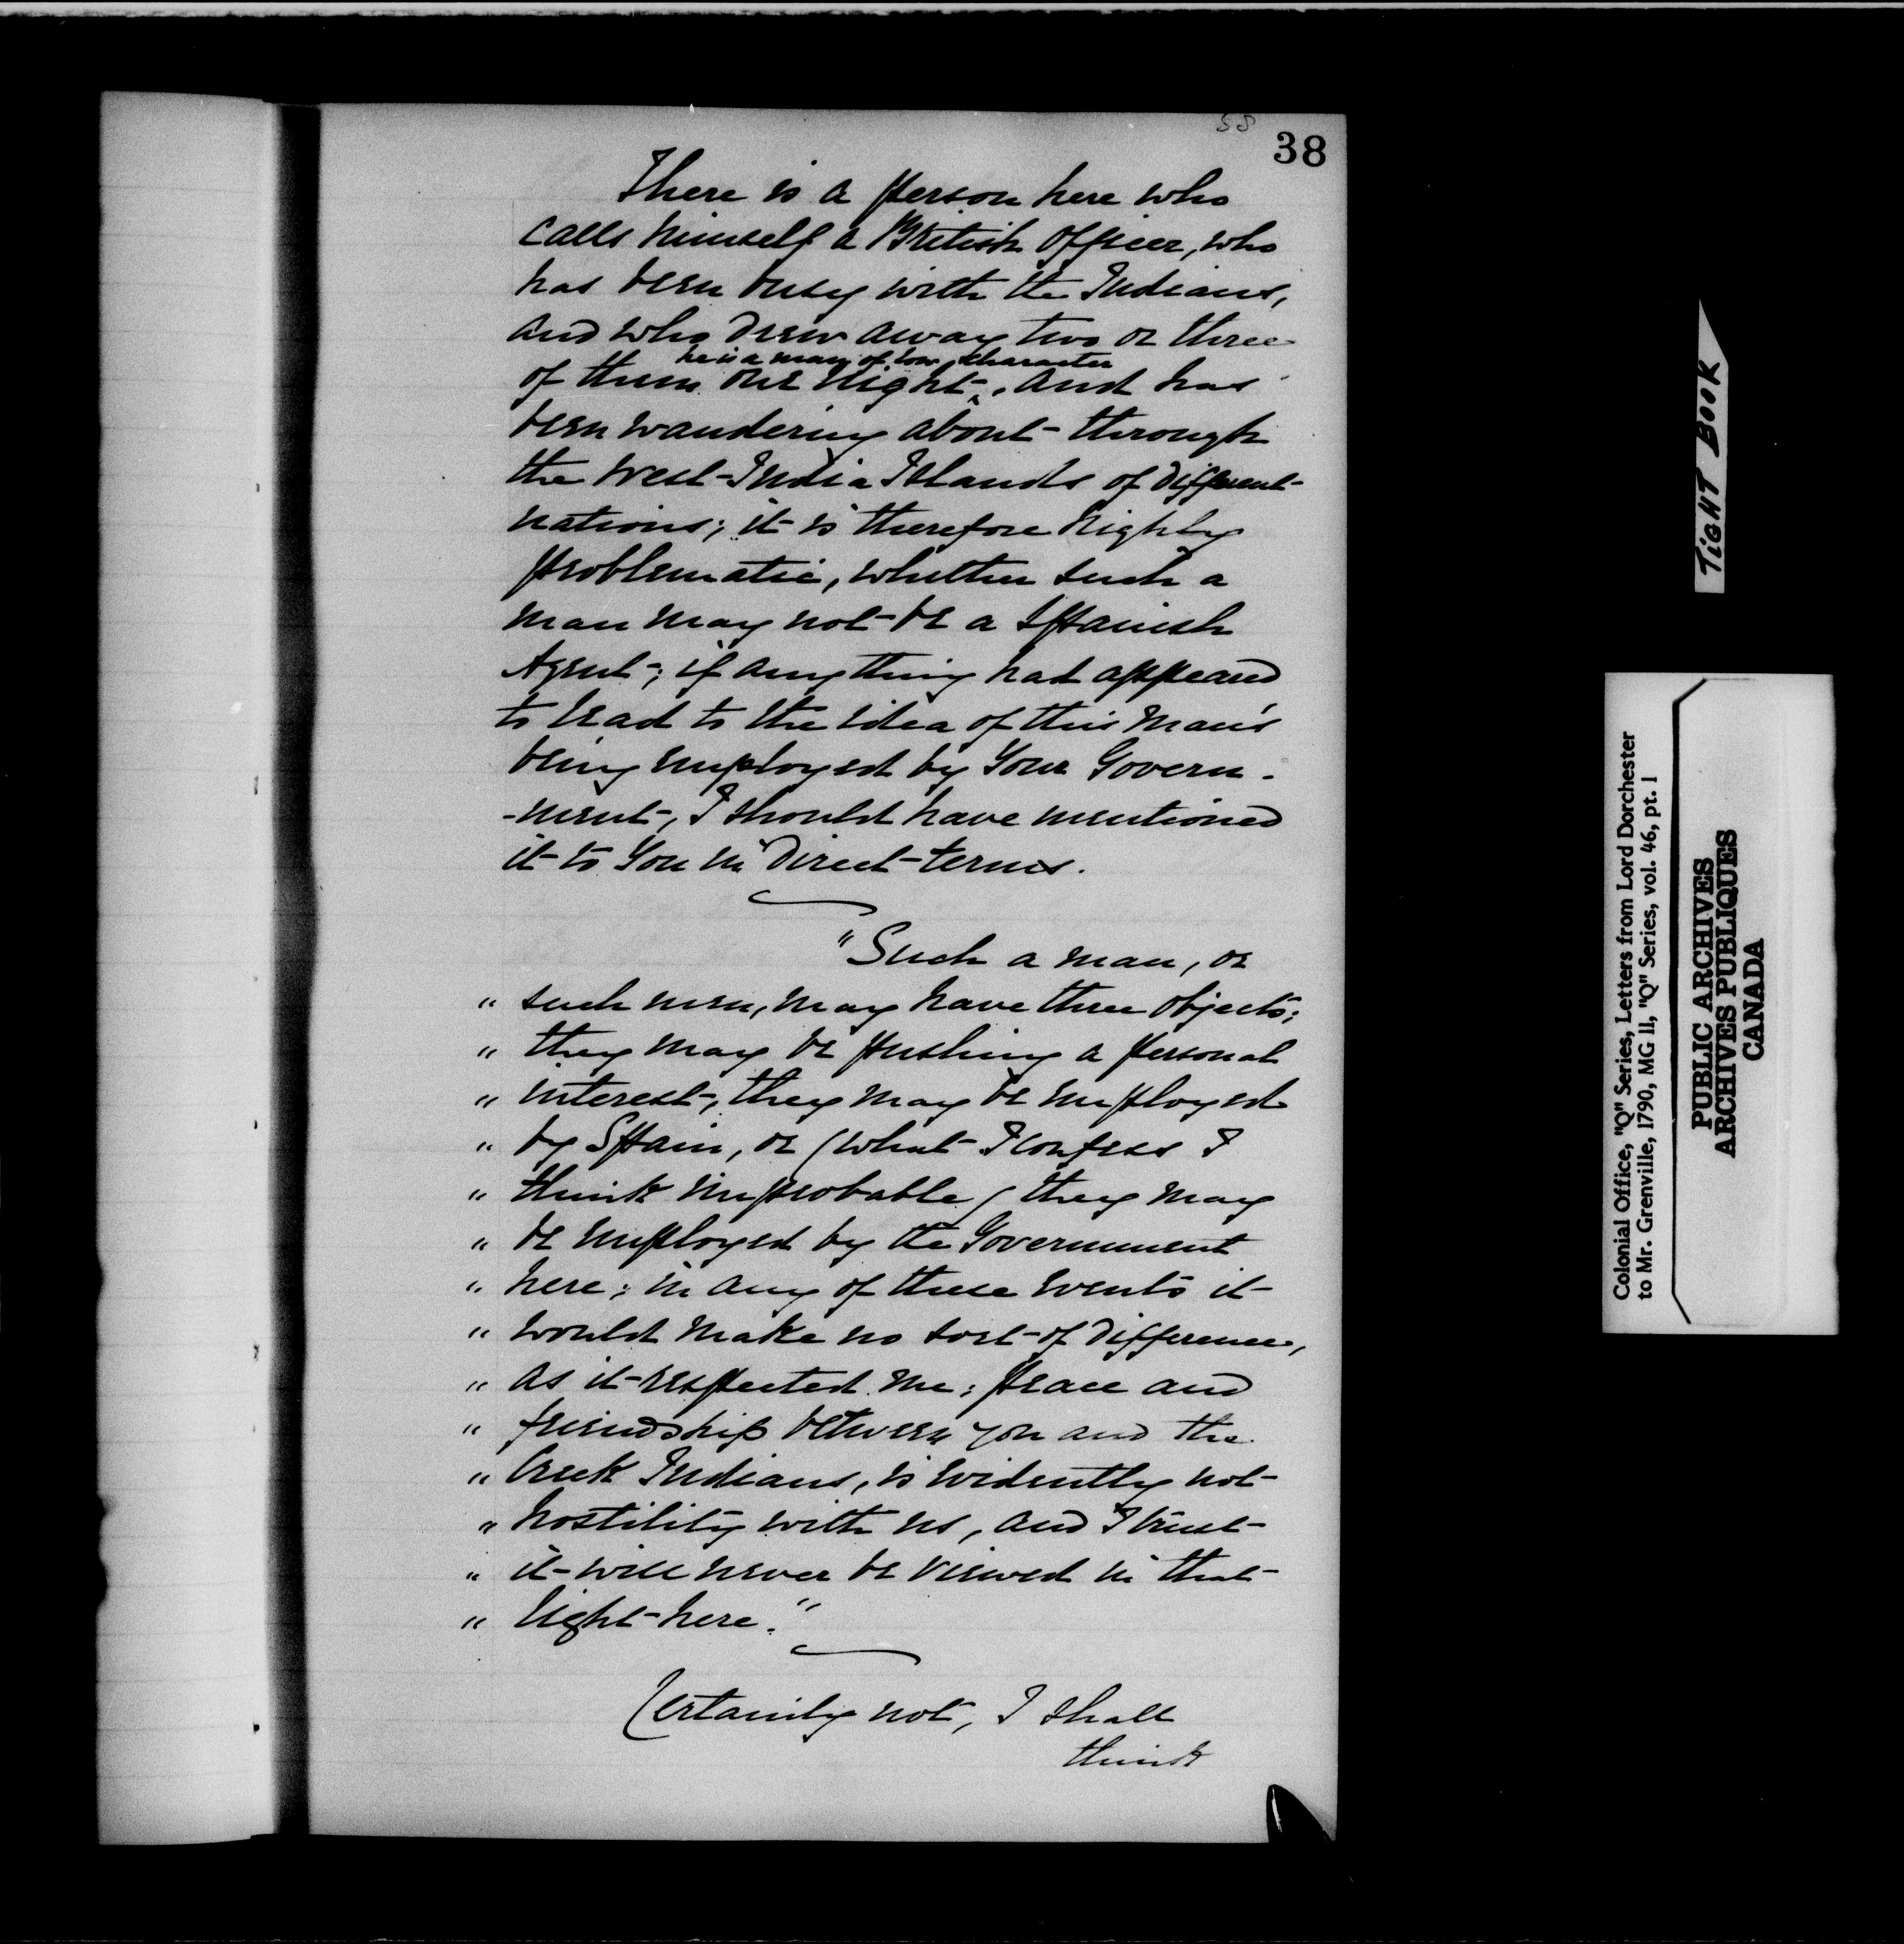 58
38
There is a person here who
calls himself a British Officer, who
has been busy with the Indians,
and who drew away two or three
he is a man of low character
of them one night, and has
been wandering about through
the West-India Islands of different
nations; it is therefore highly
problematic, whether such a
man may not be a Spanish
Agent; if any thing had appeared
to lead to the idea of this man's
being employed by Your Govern-
-ment, I should have mentioned
it to You in direct terms.
"Such a man, or
" such men, may have three objects;
" they may be pushing a personal
" interest, they may be employed
" by Spain, or (what I confess I
" think improbable) they may
" be employed by the Government
" here; in any of these events it
" would make no sort of difference,
" as it respected me; peace and
" friendship between you and the
" Creek Indians, is evidently not
" hostility with us, and I trust
" it will never be viewed in that
" light here."
Certainly not, I shall
think
TIGHT BOOK
Colonial Office, "Q" Series, Letters from Lord Dorchester
to Mr. Grenville, 1790, MG 11, "Q" Series, vol. 46, pt. 1
PUBLIC ARCHIVES
ARCHIVES PUBLIQUES
CANADA